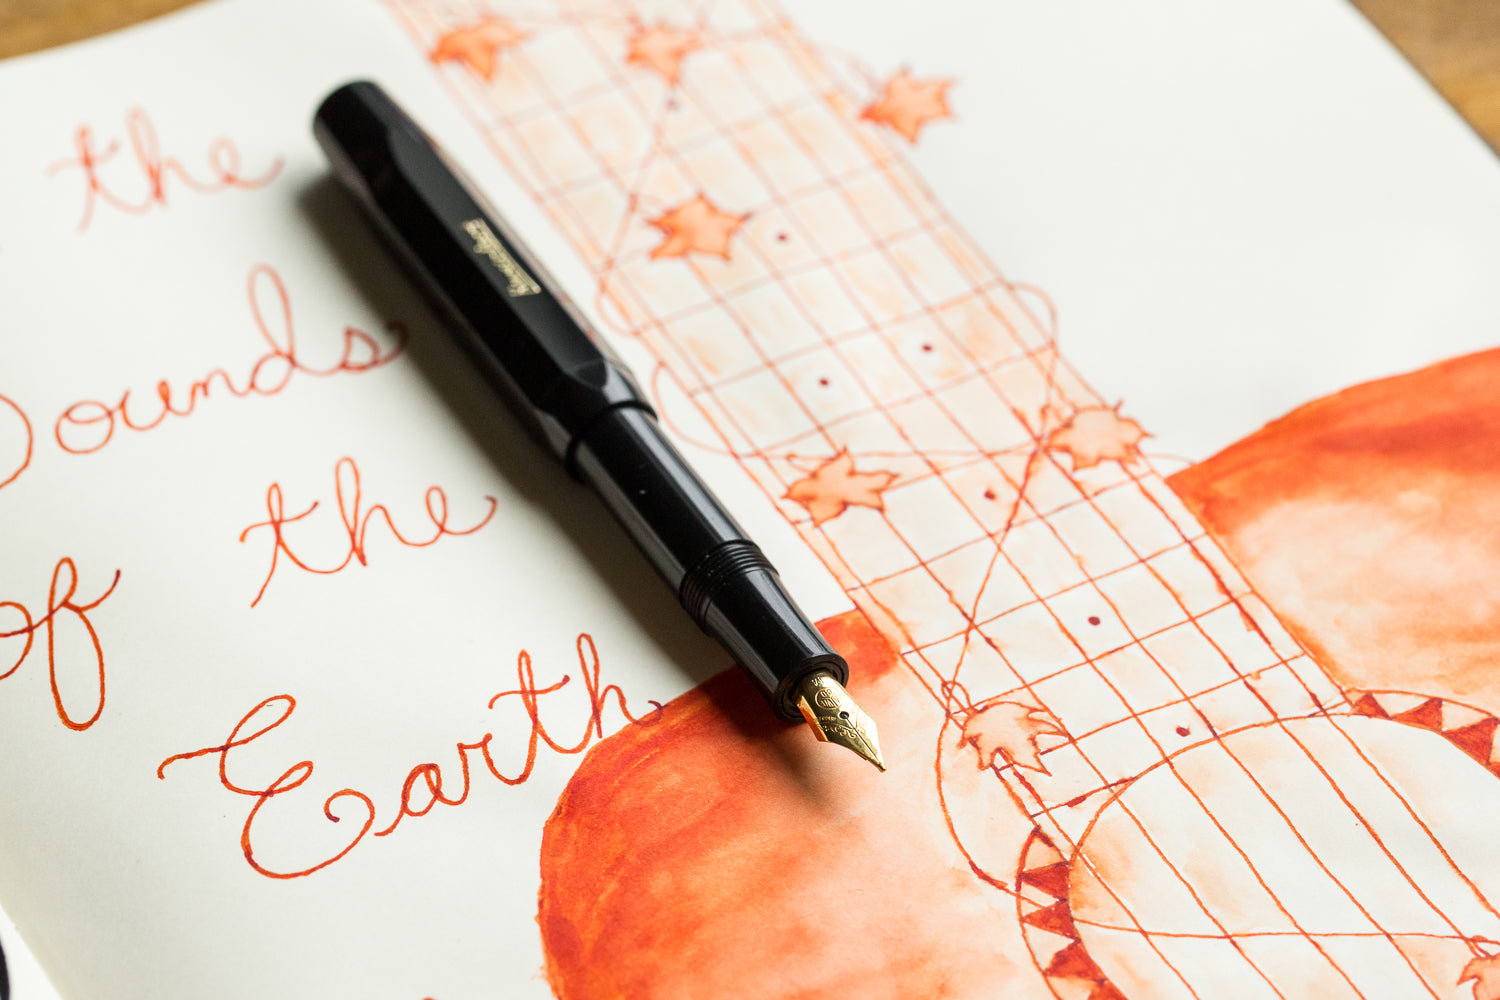 the
Sounds
of the
Earth
Kaweco